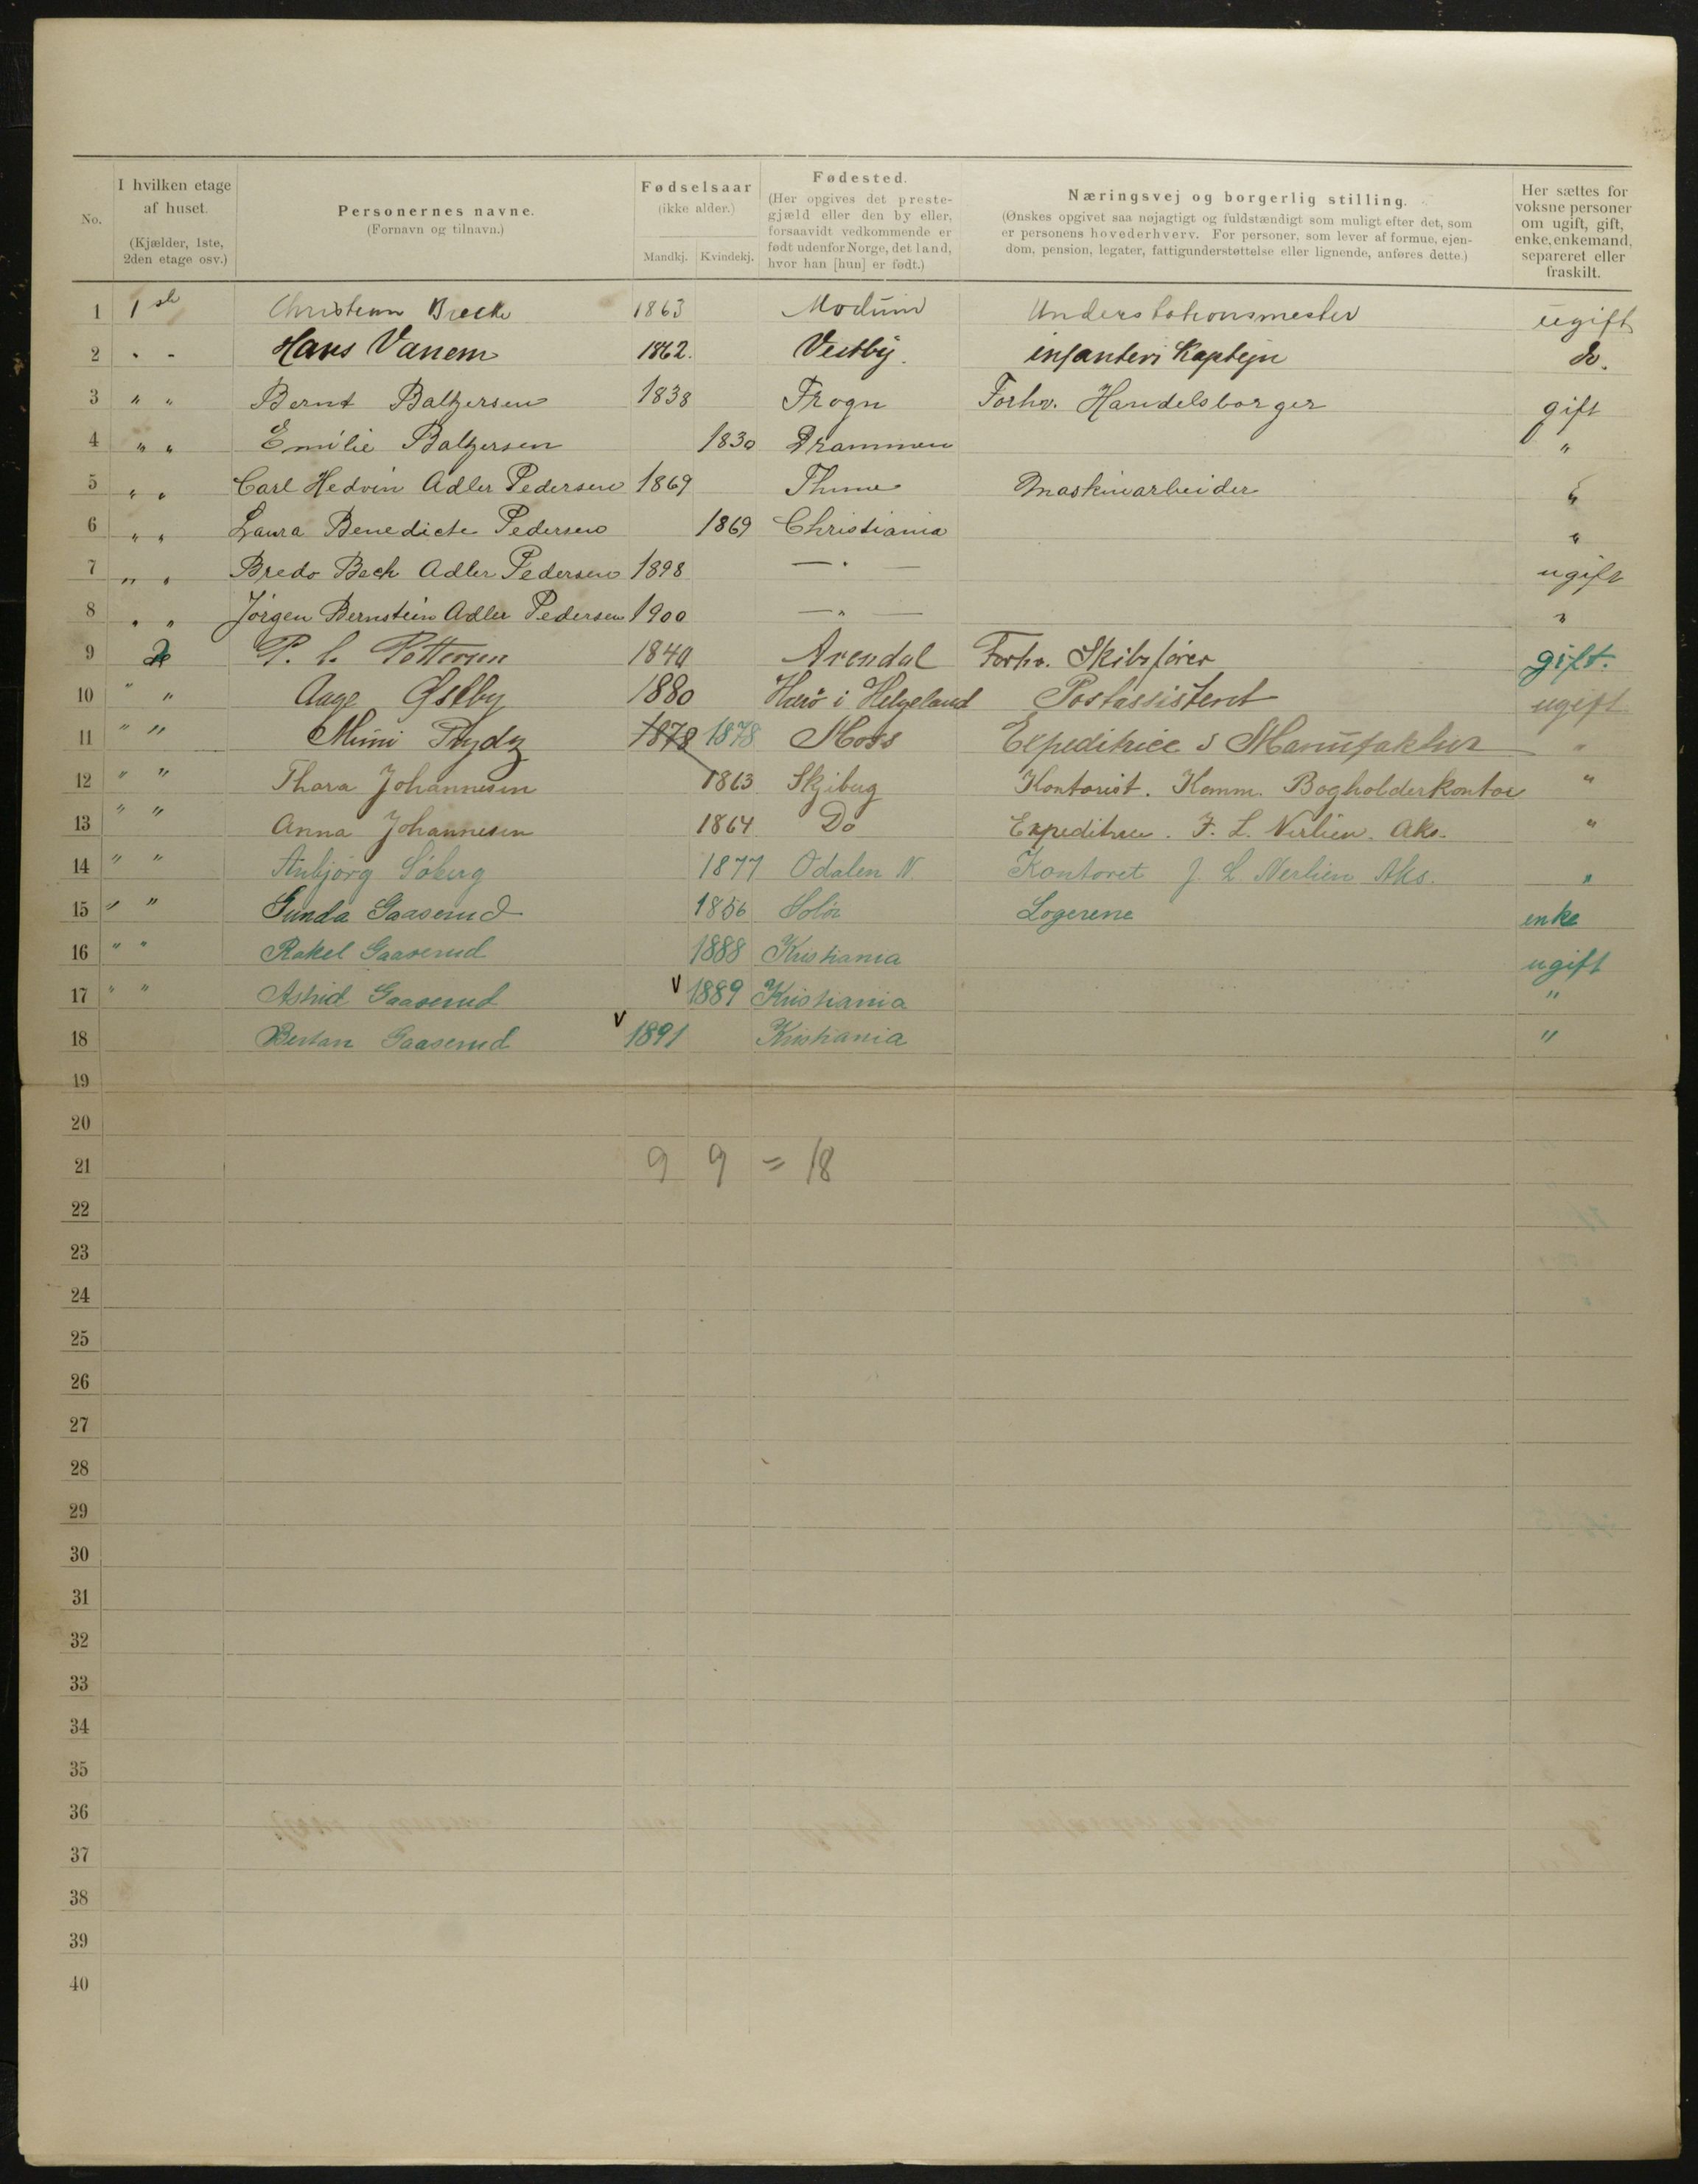 No. I hvilken etage af huset. (Kjælder, 1ste, 2den etage osv.) Personernes navne. (Fornavn og tilnavn.) Fødselsaar (ikke alder.) Mandkj. Kvindekj. Fødested. (Her opgives det prestegjæld eller den by eller, forsaavidt vedkommende er født udenfor Norge, det land, hvor han [hun] er født.) Næringsvej og borgerlig stilling. (Ønskes opgivet saa nøjagtigt og fuldstændigt som muligt efter det, som er personens hovederhverv. For personer, som lever af formue, ejendom, pension, legater, fattigunderstøttelse eller lignende, anføres dette.) Her sættes for voksne personer om ugift, gift, enke, enkemand, separeret eller fraskilt.
1 1ste 1863 Modum Understationsmester ugift
2 " " Hans Vanem 1862. Vestby. infanteri Kaptejn do.
3 " " Bernt Baltzersen 1838 Frogn Forhv. Handelsborger gift
4 " " Emilie Baltzersen 1830 Drammen "
5 " " Carl Hedvin Adler Pedersen 1869 Maskinarbeider "
6 " " Laura Benedicte Pedersen 1869 Christiania "
7 " " Bredo Bech Adler Pedersen 1898 — " — ugift
8 " " Jörgen Bernstein Adler Pedersen 1900 — " — "
9 2 P. C. Pettersen 1840 Arendal Forhv. Skibsfører gift.
10 " " Aage Østby 1880 Herö i Helgeland Postassistent ugift
11 " " Mimi Thydz 1878 1878 Moss Expeditrice i Manufaktur "
12 " " Thora Johannesen 1863 Skjiberg Kontorist. Komm. Bogholderkontor "
13 " " Anna Johannesen 1864 Do Expeditrice. J. L. Nerlien. Aks. "
14 " " Anbjörg Söberg 1877 Odalen N. Kontoret J. L. Nerlien Aks. "
15 " " Gunda Gaaserud 1856 Solör Logerene enke
16 " " Rakel Gaaserud 1888 Kristiania ugift
17 " " Astrid Gaaserud V 1889 Kristiania "
18 Gaaserud V 1891 Kristiania "
19
20
21 9 9 = 18
22
23
24
25
26
27
28
29
30
31
32
33
34
35
36
37
38
39
40